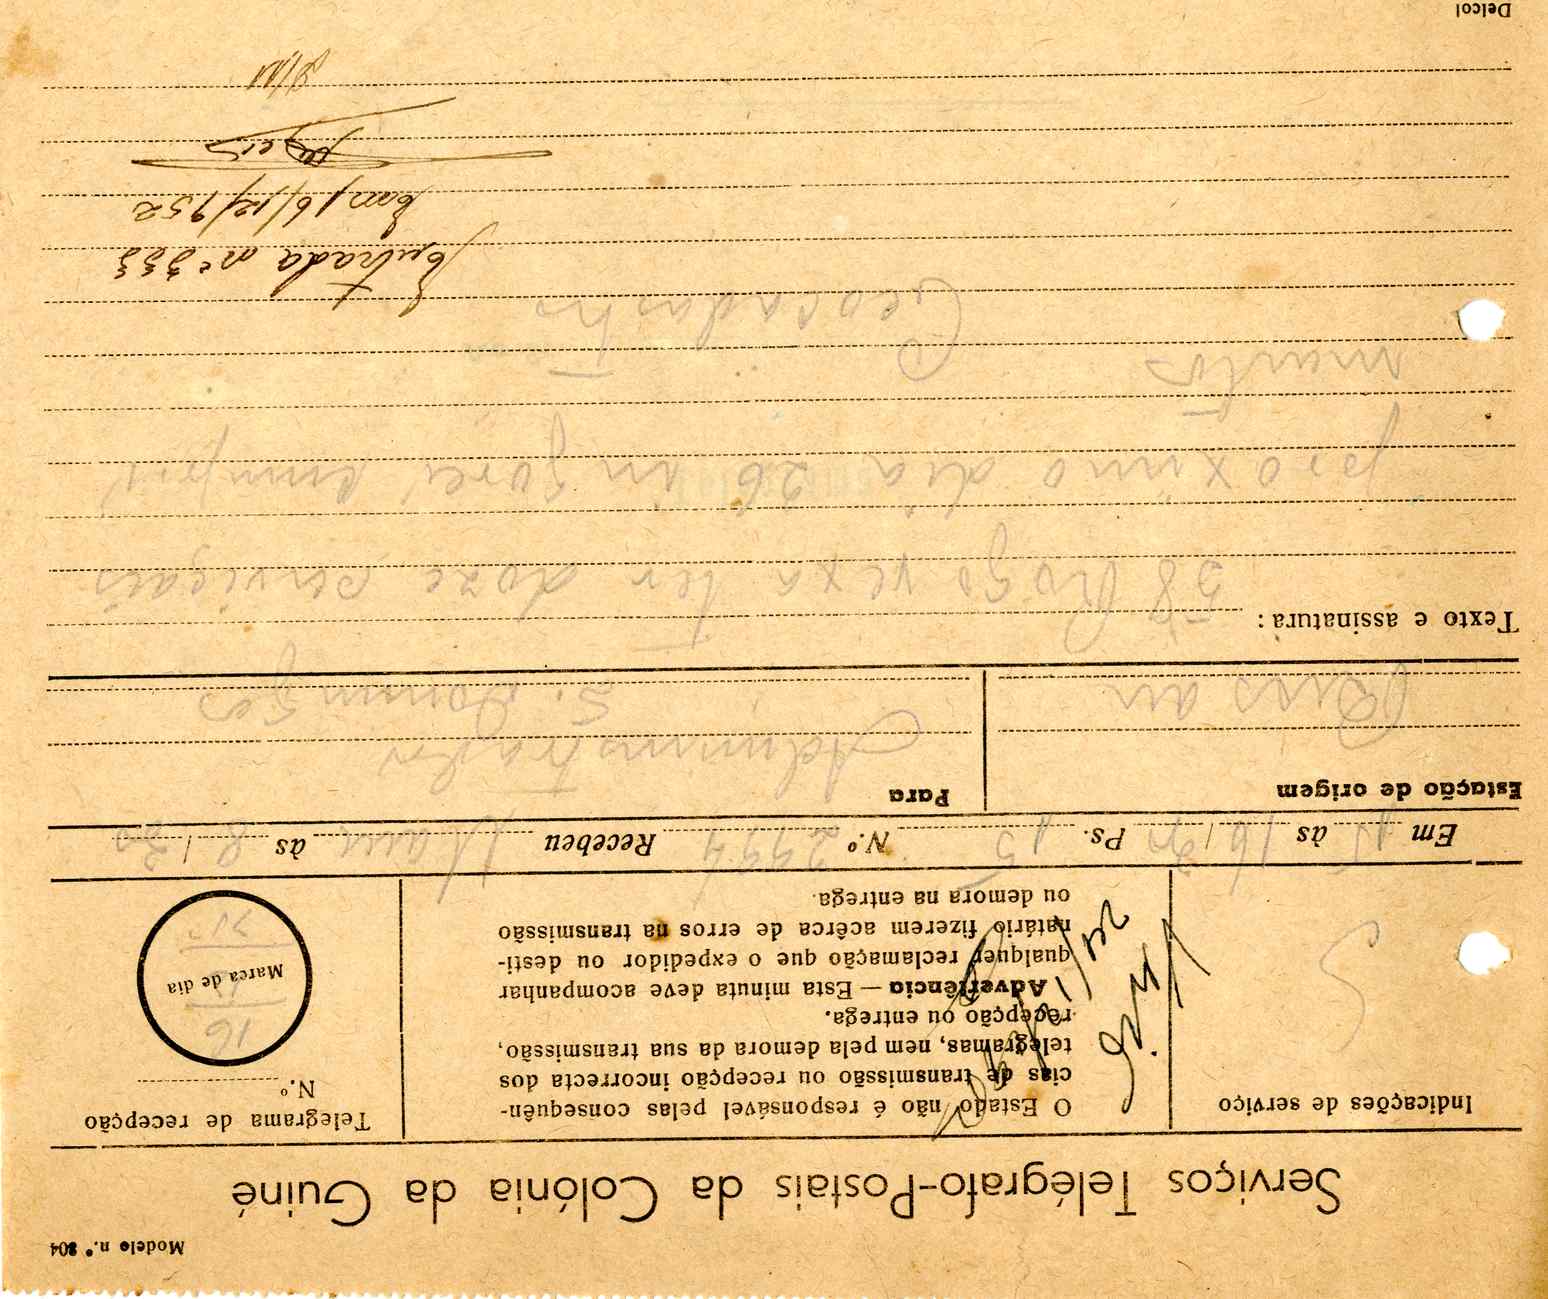 Modelo n.º 804
Serviços Telégrafo-Postais da Colónia da Guiné
Indicações de serviço
S
O Estado não é responsável pelas consequên-
cias de transmissão ou recepção incorrecta dos
telegramas, nem pela demora da sua transmissão,
recepção ou entrega.
Advertência — Esta minuta deve acompanhar
qualquer reclamação que o expedidor ou desti-
natário fizerem acêrca de erros na transmissão
ou demora na entrega.
Telegrama de recepção
N.º
16
12
Marca de dia
Em 15 às 16 / 30 Ps. 15 N.º 2994 Recebeu às 8 / 30
Estação de origem
Bissau
Para
Administrador
S. Domingos
Texto e assinatura:
58 Rogo vexa ter doze serviçais
próximo dia 26 in Sorel cumpri
mentos
Geocadastro
Entrada nº 333
Em, 16/12/952
Delcol